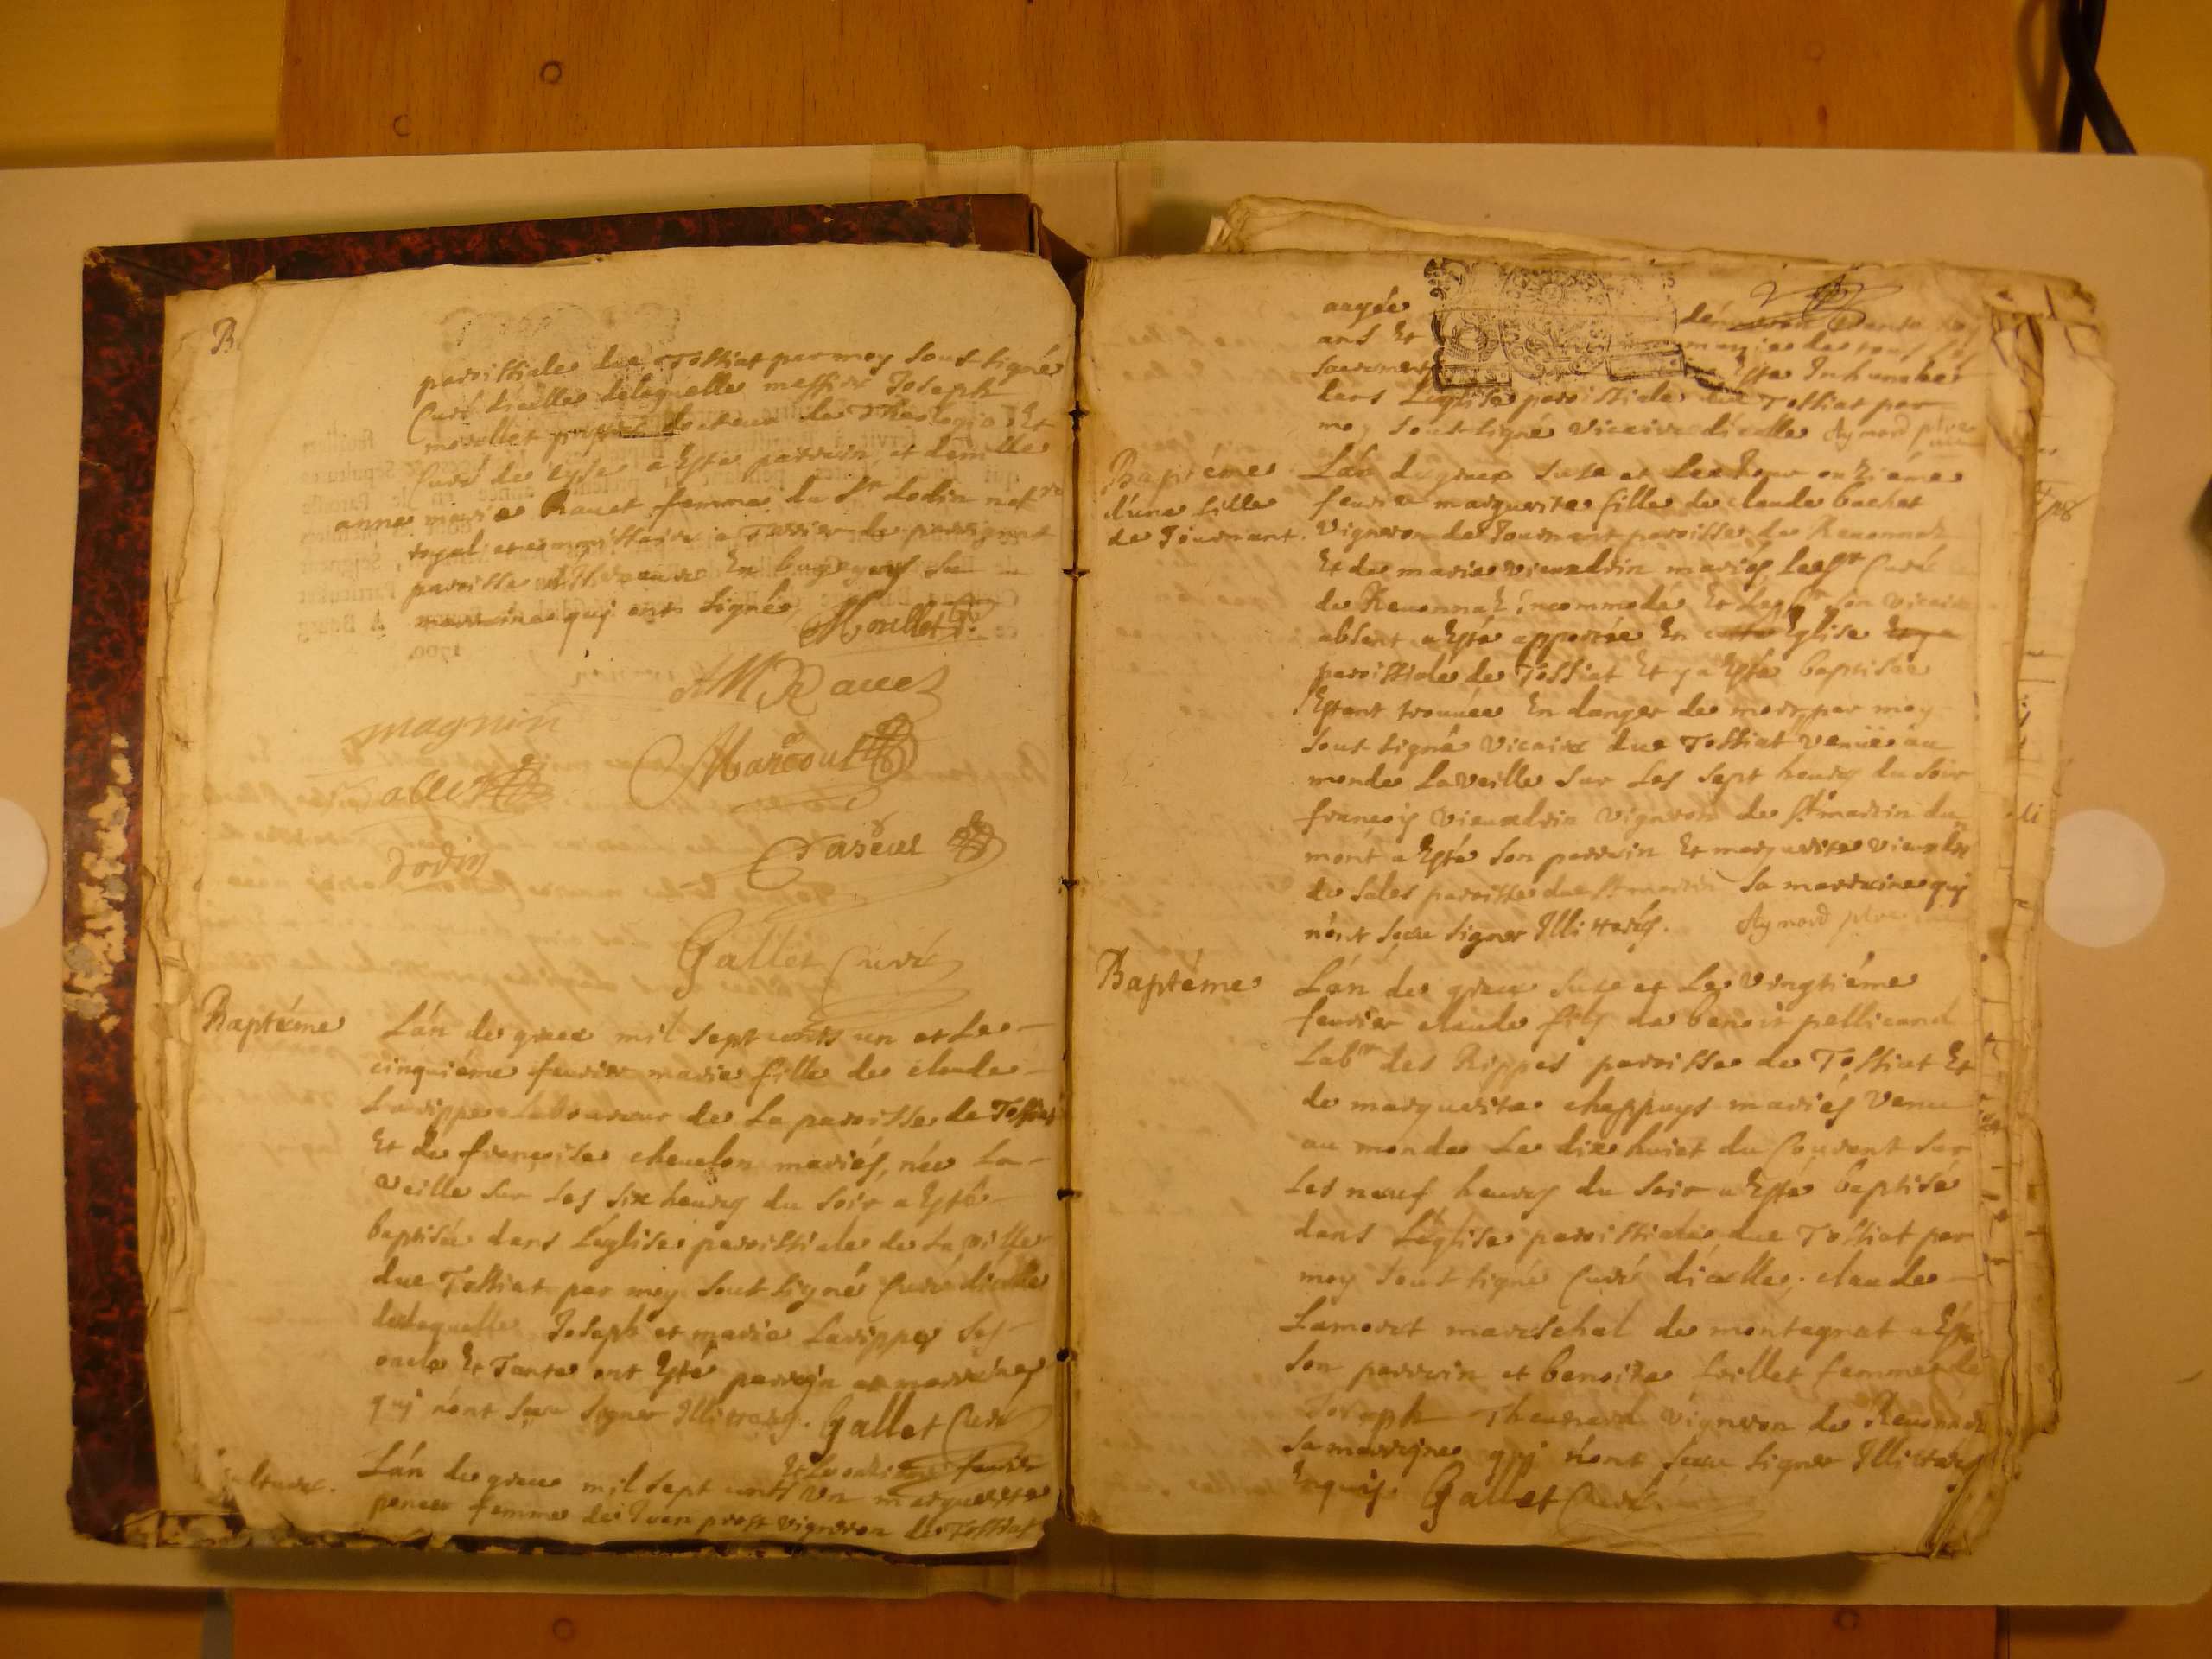 B
paroissiale due Tossiat par moy soub signé
Curé dicelle de laquelle messire Joseph
morellet docteur de Theologie Et
Curé de a Esté parrain, et demlle
anne marie Rauet femme du Sr dodin notre
royal et commissaire a Terrier de
paroisse En bugeys sa
marraine quj ont signés Morellet
AM Rauet
magnin
Marcoul
dodin
Gallet Curé
Baptéme
Lán de grace mil sept cents un et Le
cinquiéme feurier marie fille de claude
Larippe Laboureur de La paroisse de Tossiat
Et de françoise cheuelon mariés, née La
veille sur Les six heures du soir a Esté
baptisée dans Léglise paroissiale de La ville
due Tossiat par moy soub signé Curé dicelle
de laquelle Joseph et marie Larippe ses
oncle Et Tante ont Esté parrajn et marraine
quj nónt sceu signer Illitterés. Gallet Curé
Lán de grace mil sept cents un Et Le onziéme feurier marguerite
femme de prost vigneron de Tossiat
aagée de
ans Et de tous ses
sacrements Esté Inhumée
dans Léglise paroissiale due Tossiat par
moy soub signé vicaire dicelle Aymard ptre
Baptéme
dúne fille
de Tournant.
Lán de grace susd et Le Jour onziéme
feurier marguerite fille de claude bachet
vigneron de Tournant paroisse de Reuonnaz
Et de marie vieudrin mariés, Le Sr Curé
de Reuonnaz incommodé Et Le Sr son vicaire
absent a Esté apportée En cette Eglise Et y a
paroissiale de Tossiat Et y a Esté baptisée
Estant trouuée En danger de mort par moy
soub signé vicaire due Tossiat venüe au
monde La veille sur Les sept heures du soir
françois vieudrin vigneron de St martin du
mont a Esté son parrain Et marguerite
de sales paroisse due St martin sa marraine quj
nónt sceu signer Illitterés. Aymard ptre
Baptéme
Lán de grace susd et Le vingtiéme
feurier claude fils de benoit pellicand
Labr des Rippes paroisse de Tossiat Et
de marguerite chappuys mariés venu
au monde Le dix huict du Courant sur
Les neuf heures du soir a Esté baptisé
dans Léglise paroissiale due Tossiat par
moy soub signé Curé dicelle; claude
Lamoret mareschal de montagnat a Esté
son parrain et benoite femme de
Joseph Theuenard vigneron de Reuonnaz
sa marrajne quj nónt sceu signer Illitterés
Enquis. Gallet Curé